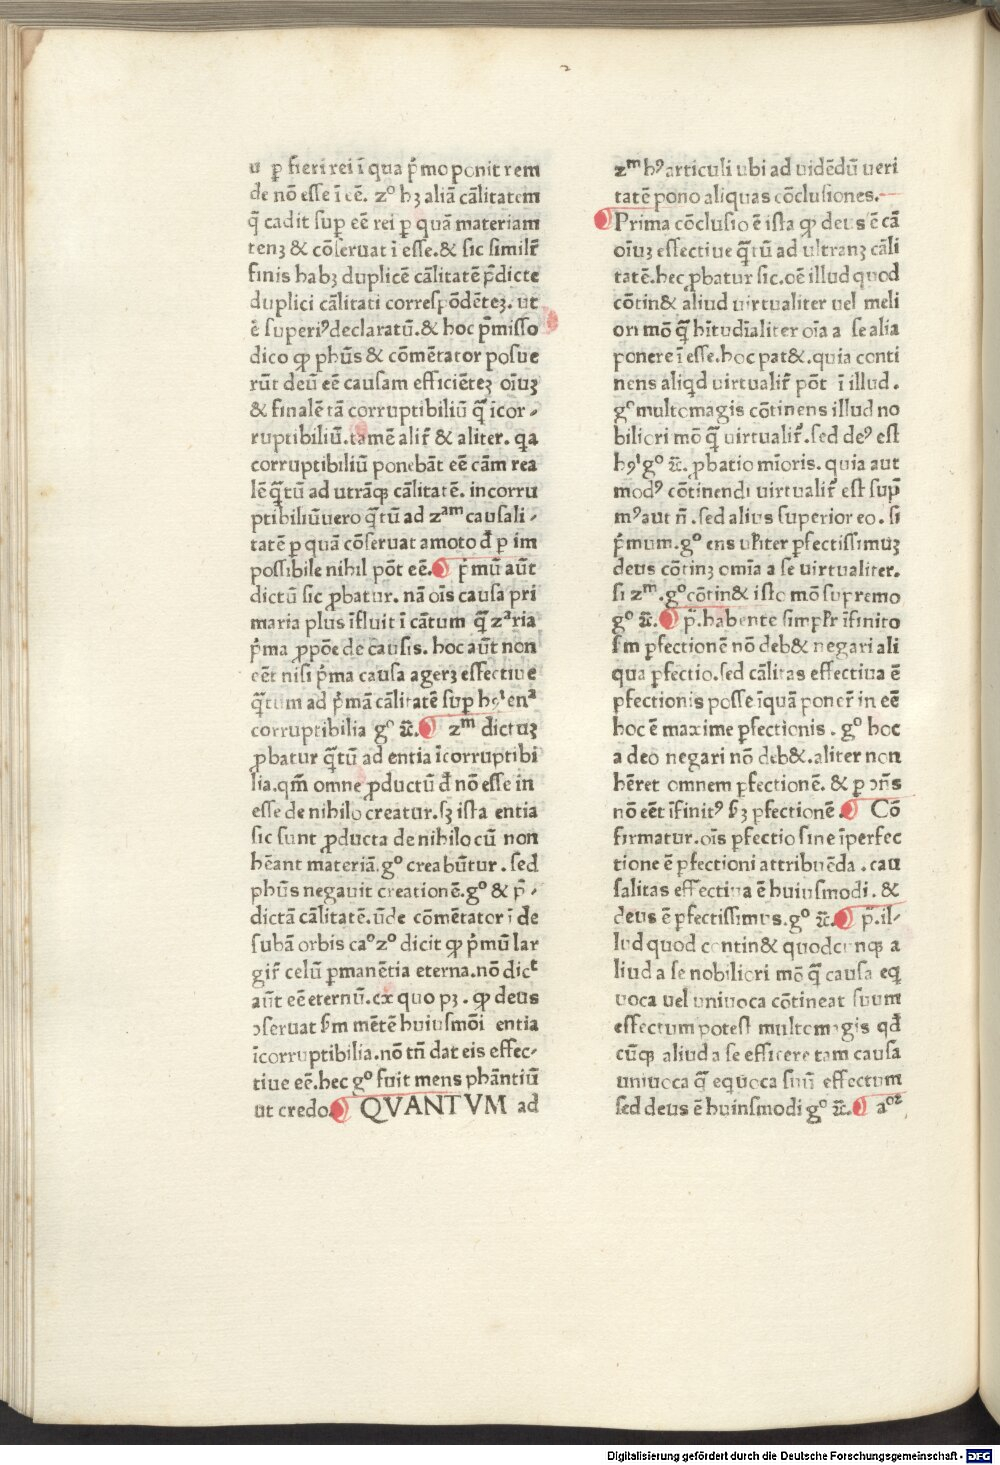 2
u ꝑ fieri rei ī qua pͥmo ponit rem
de nō esse ī eē. zº hꝫ aliā cālitatem
q̄ cadit suꝑ eē rei ꝑ quā materiam
tenꝫ & cōseruat ī esse. & sic similr̄
finis habꝫ duplicē cālitatē p̄dicte
duplici cālitati correspōdēteꝫ. ut
ē superiꝰ declaratū. & hoc p̄misso
dico ꝙ phūs & cōmētator posue
rūt deū eē causam efficiēteꝫ oīuꝫ
& finalē tā corruptibiliū q̄ icor-
ruptibiliū. tamē alir̄ & aliter. qa
corruptibiliū ponebāt eē cām rea
lē q̄tū ad utrāqꝫ cālitatē. incorru
ptibiliū uero q̄tū ad zᵃᵐ causali-
tatē ꝑ quā cōseruat amoto đ ꝑ im
possibile nihil pōt eē. pͥmū aūt
dictū sic ꝓbatur. nā oīs causa pri
maria plus īfluit ī cātum q̄ zᵃria
pͥma ꝓpōe de causis. hoc aūt non
eēt nisi pͥma causa agerꝫ effectiue
q̄tum ad pͥmā cālitatē suꝑ hꝰꝰ enᵃ
corruptibilia gº ⁊c̄. zᵐ dictuꝫ
ꝓbatur q̄tū ad entia īcorruptibi
lia. qm̄ omne ꝓductū đ nō esse in
esse de nihilo creatur. sꝫ ista entia
sic sunt ꝓducta de nihilo cū non
hēant materiā. gº creabūtur. sed
phūs negauit creationē. gº & p̄-
dictā cālitatē. ūde cōmētator ī de
subā orbis caº zº dicit ꝙ pͥmū lar
gir̄ celū ꝑmanētia eterna. nō dicᵗ
aūt eē eternū. ex quo pꝫ. ꝙ deus
ↄseruat ẜm mētē huiusmōi entia
īcorruptibilia. nō tn̄ dat eis effec-
tiue eē. hec gº fuit mens phāntiū
ut credo. QVANTVM ad
zᵐ hꝰ articuli ubi ad uidēdū ueri
tatē pono aliquas cōclusiones.
Prima cōclusio ē ista ꝙ deus ē cā
oīuꝫ effectiue q̄tū ad ultranꝫ cāli
tatē. hec ꝓbatur sic. oē illud quod
cōtin& aliud uirtualiter uel meli
ori mō q̄ hītudīaliter oīa a se alia
ponere ī esse. hoc pat&. quia conti
nens aliqd uirtualir̄ pōt ī illud.
gº multomagis cōtinens illud no
biliori mō q̄ uirtualir̄. sed deꝰ est
hꝰꝰ gº ⁊c̄. ꝓbatio mīoris. quia aut
modꝰ cōtinendi uirtualir̄ est sup̄
mꝰ aut n̄. sed alius superior eo. si
pͥmum. gº ens ulr̄iter ꝑfectissimuꝫ
deus cōtinꝫ omīa a se uirtualiter.
si zᵐ. gº cōtin& isto mō supremo
gº ⁊c̄. p̄. habente simpłr īfinito
ẜm ꝑfectionē nō deb& negari ali
qua ꝑfectio. sed cālitas effectiua ē
ꝑfectionis posse īquā poner̄ in eē
hoc ē maxime ꝑfectionis. gº hoc
a deo negari nō deb&. aliter non
hēret omnem ꝑfectionē. & ꝑ ↄn̄s
nō eēt īfinitꝰ ẜꝫ ꝑfectionē. Cō
firmatur. oīs ꝑfectio sine īperfec
tione ē ꝑfectioni attribuēda. cau
salitas effectiua ē huiusmodi. &
deus ē ꝑfectissimus. gº ⁊c̄. p̄. il-
lud quod contin& quodcunqꝫ a
liud a se nobiliori mō q̄ causa eq̄
uoca uel uniuoca cōtineat suum
effectum potest multomagis qđ
cūqꝫ aliud a se efficere tam causa
uniuoca q̄ equoca suū effectum
sed deus ē huinsmodi gº ⁊c̄. aºꝛ
Digitalisierung gefördert durch die Deutsche Forschungsgemeinschaft - DFG